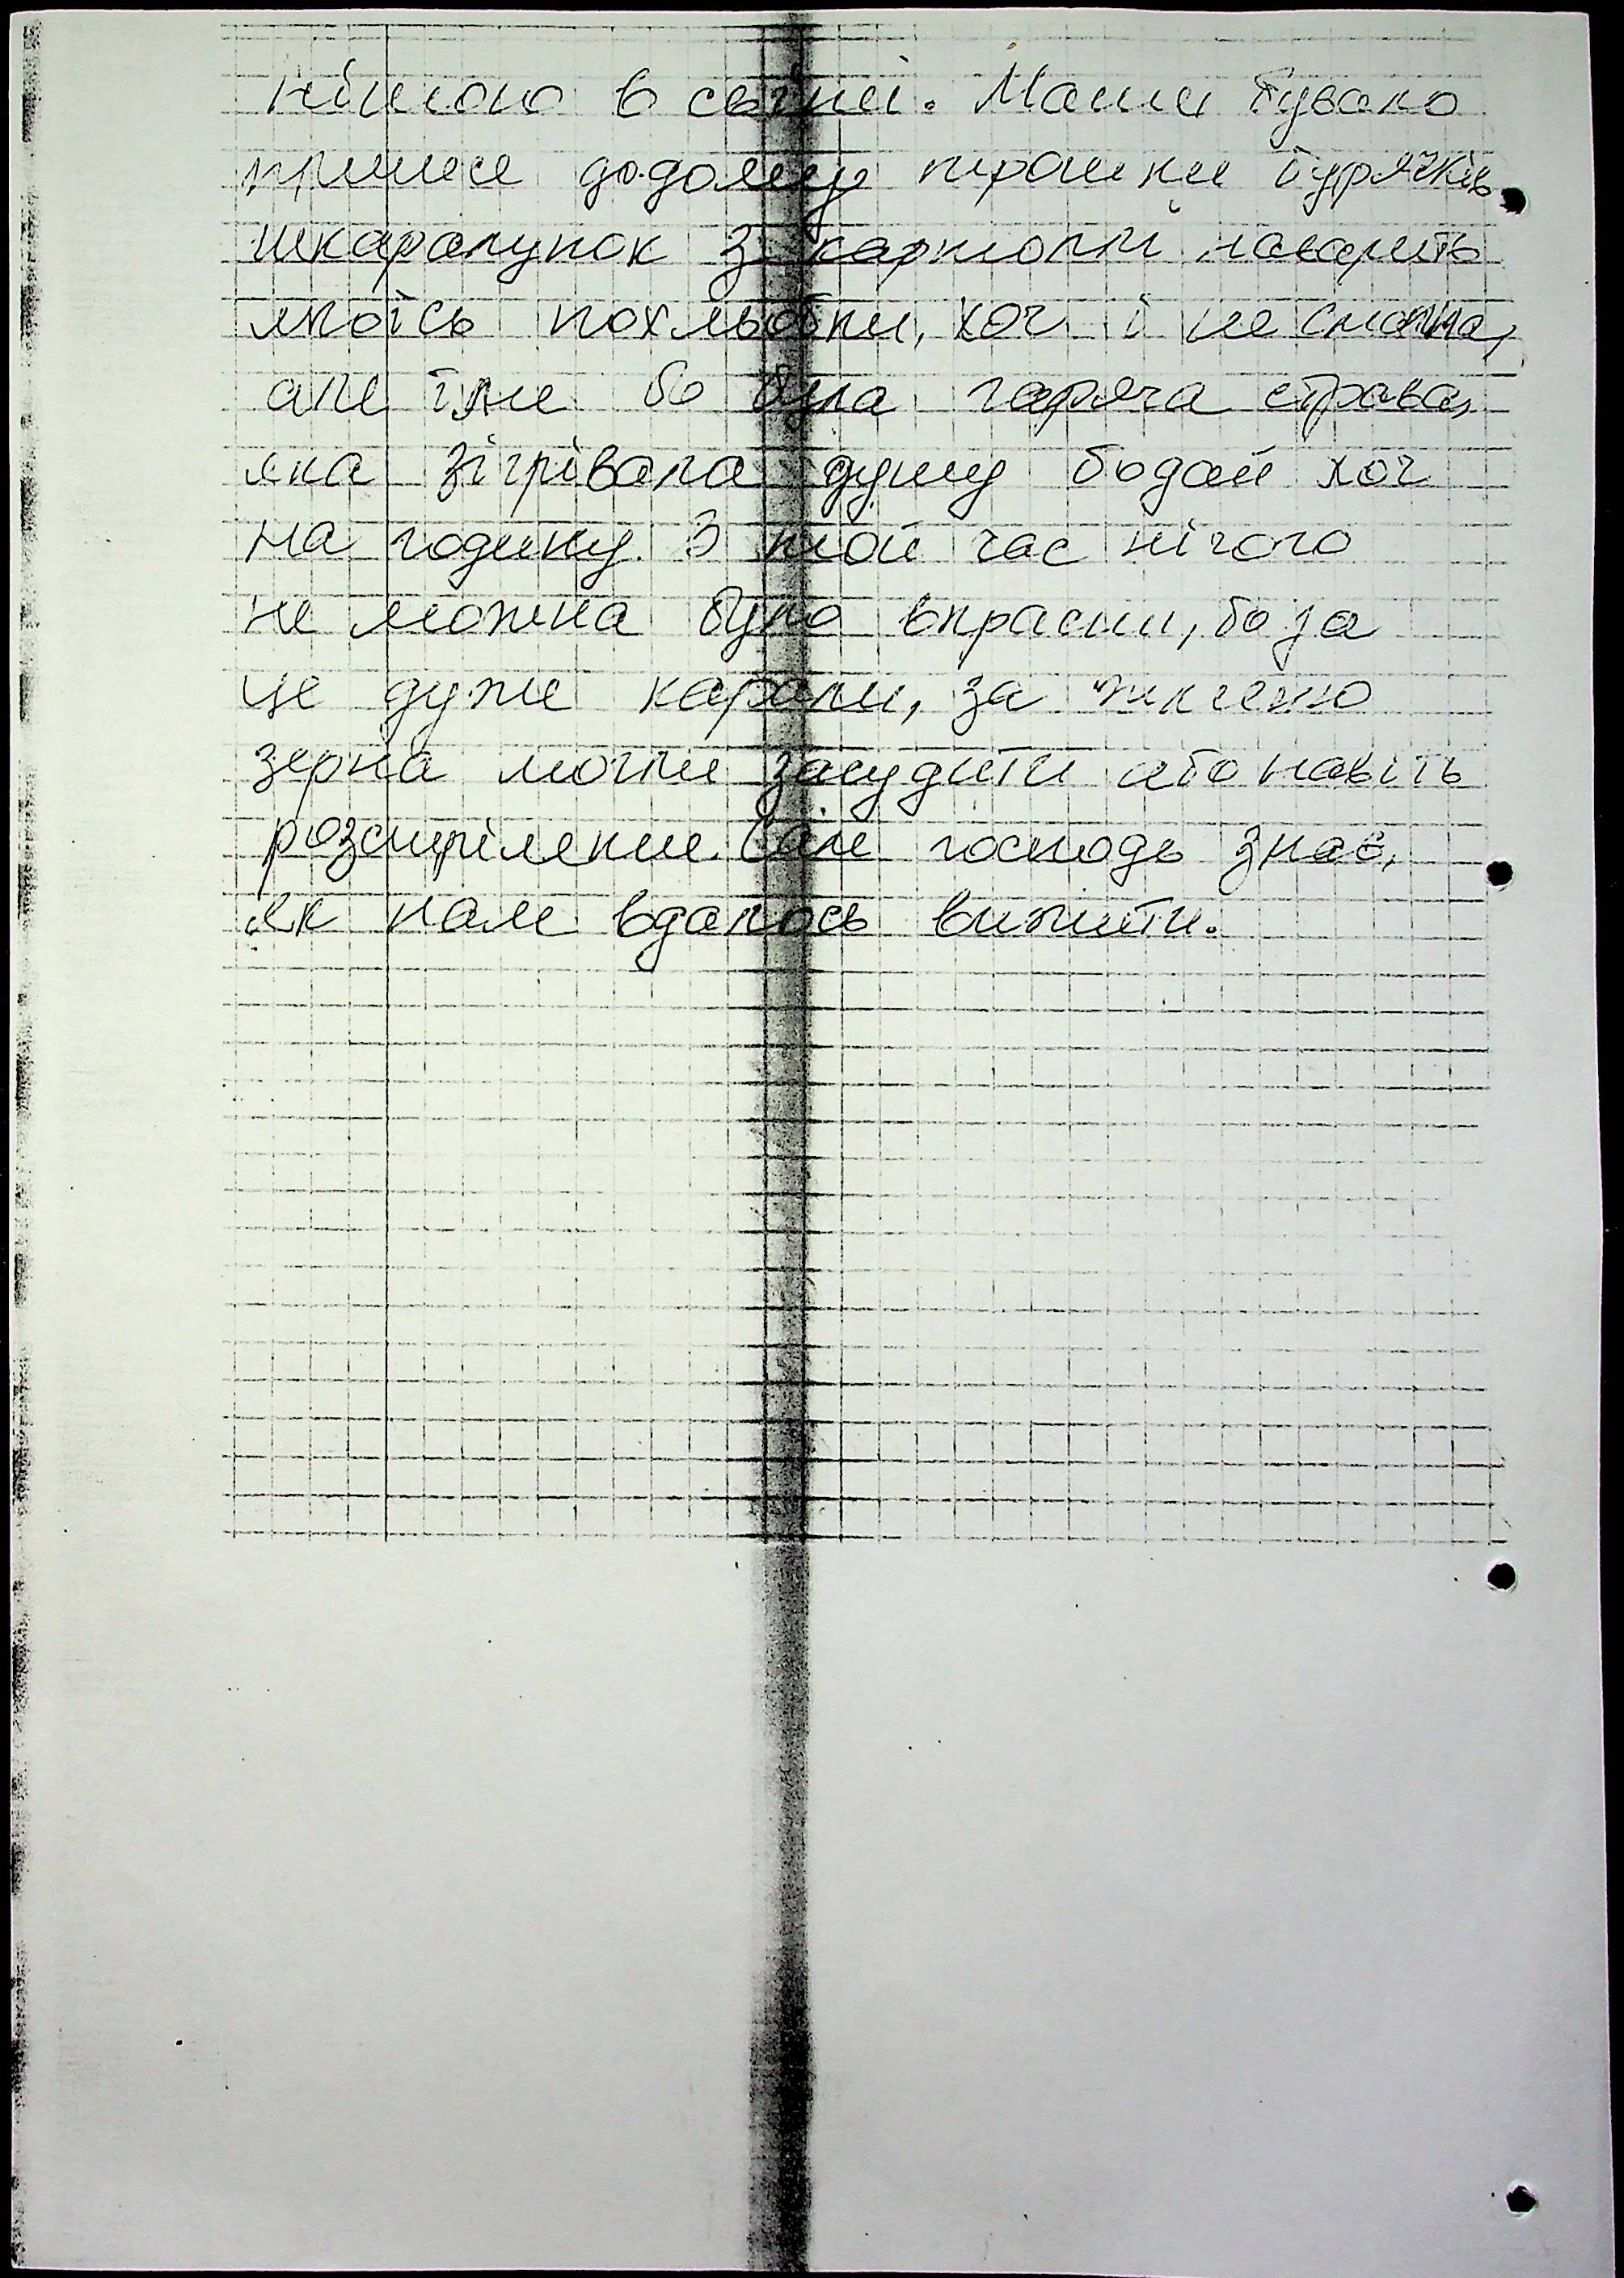 нішою в світі. Мати бувало
принесе додому трошки бурячків
шкаралупок з картоплі наварить
якоїсь похльобки, хоч і не смачна,
але їли бо була гаряча страва,
яка зігрівала душу бодай хоч
на годину. В той час нічого
не можна було вкрасти, бо за
це дуже карали, за жменю
зерна могли засудити або навіть
розстріляти. Сам господь знає,
як нам вдалось вижити.